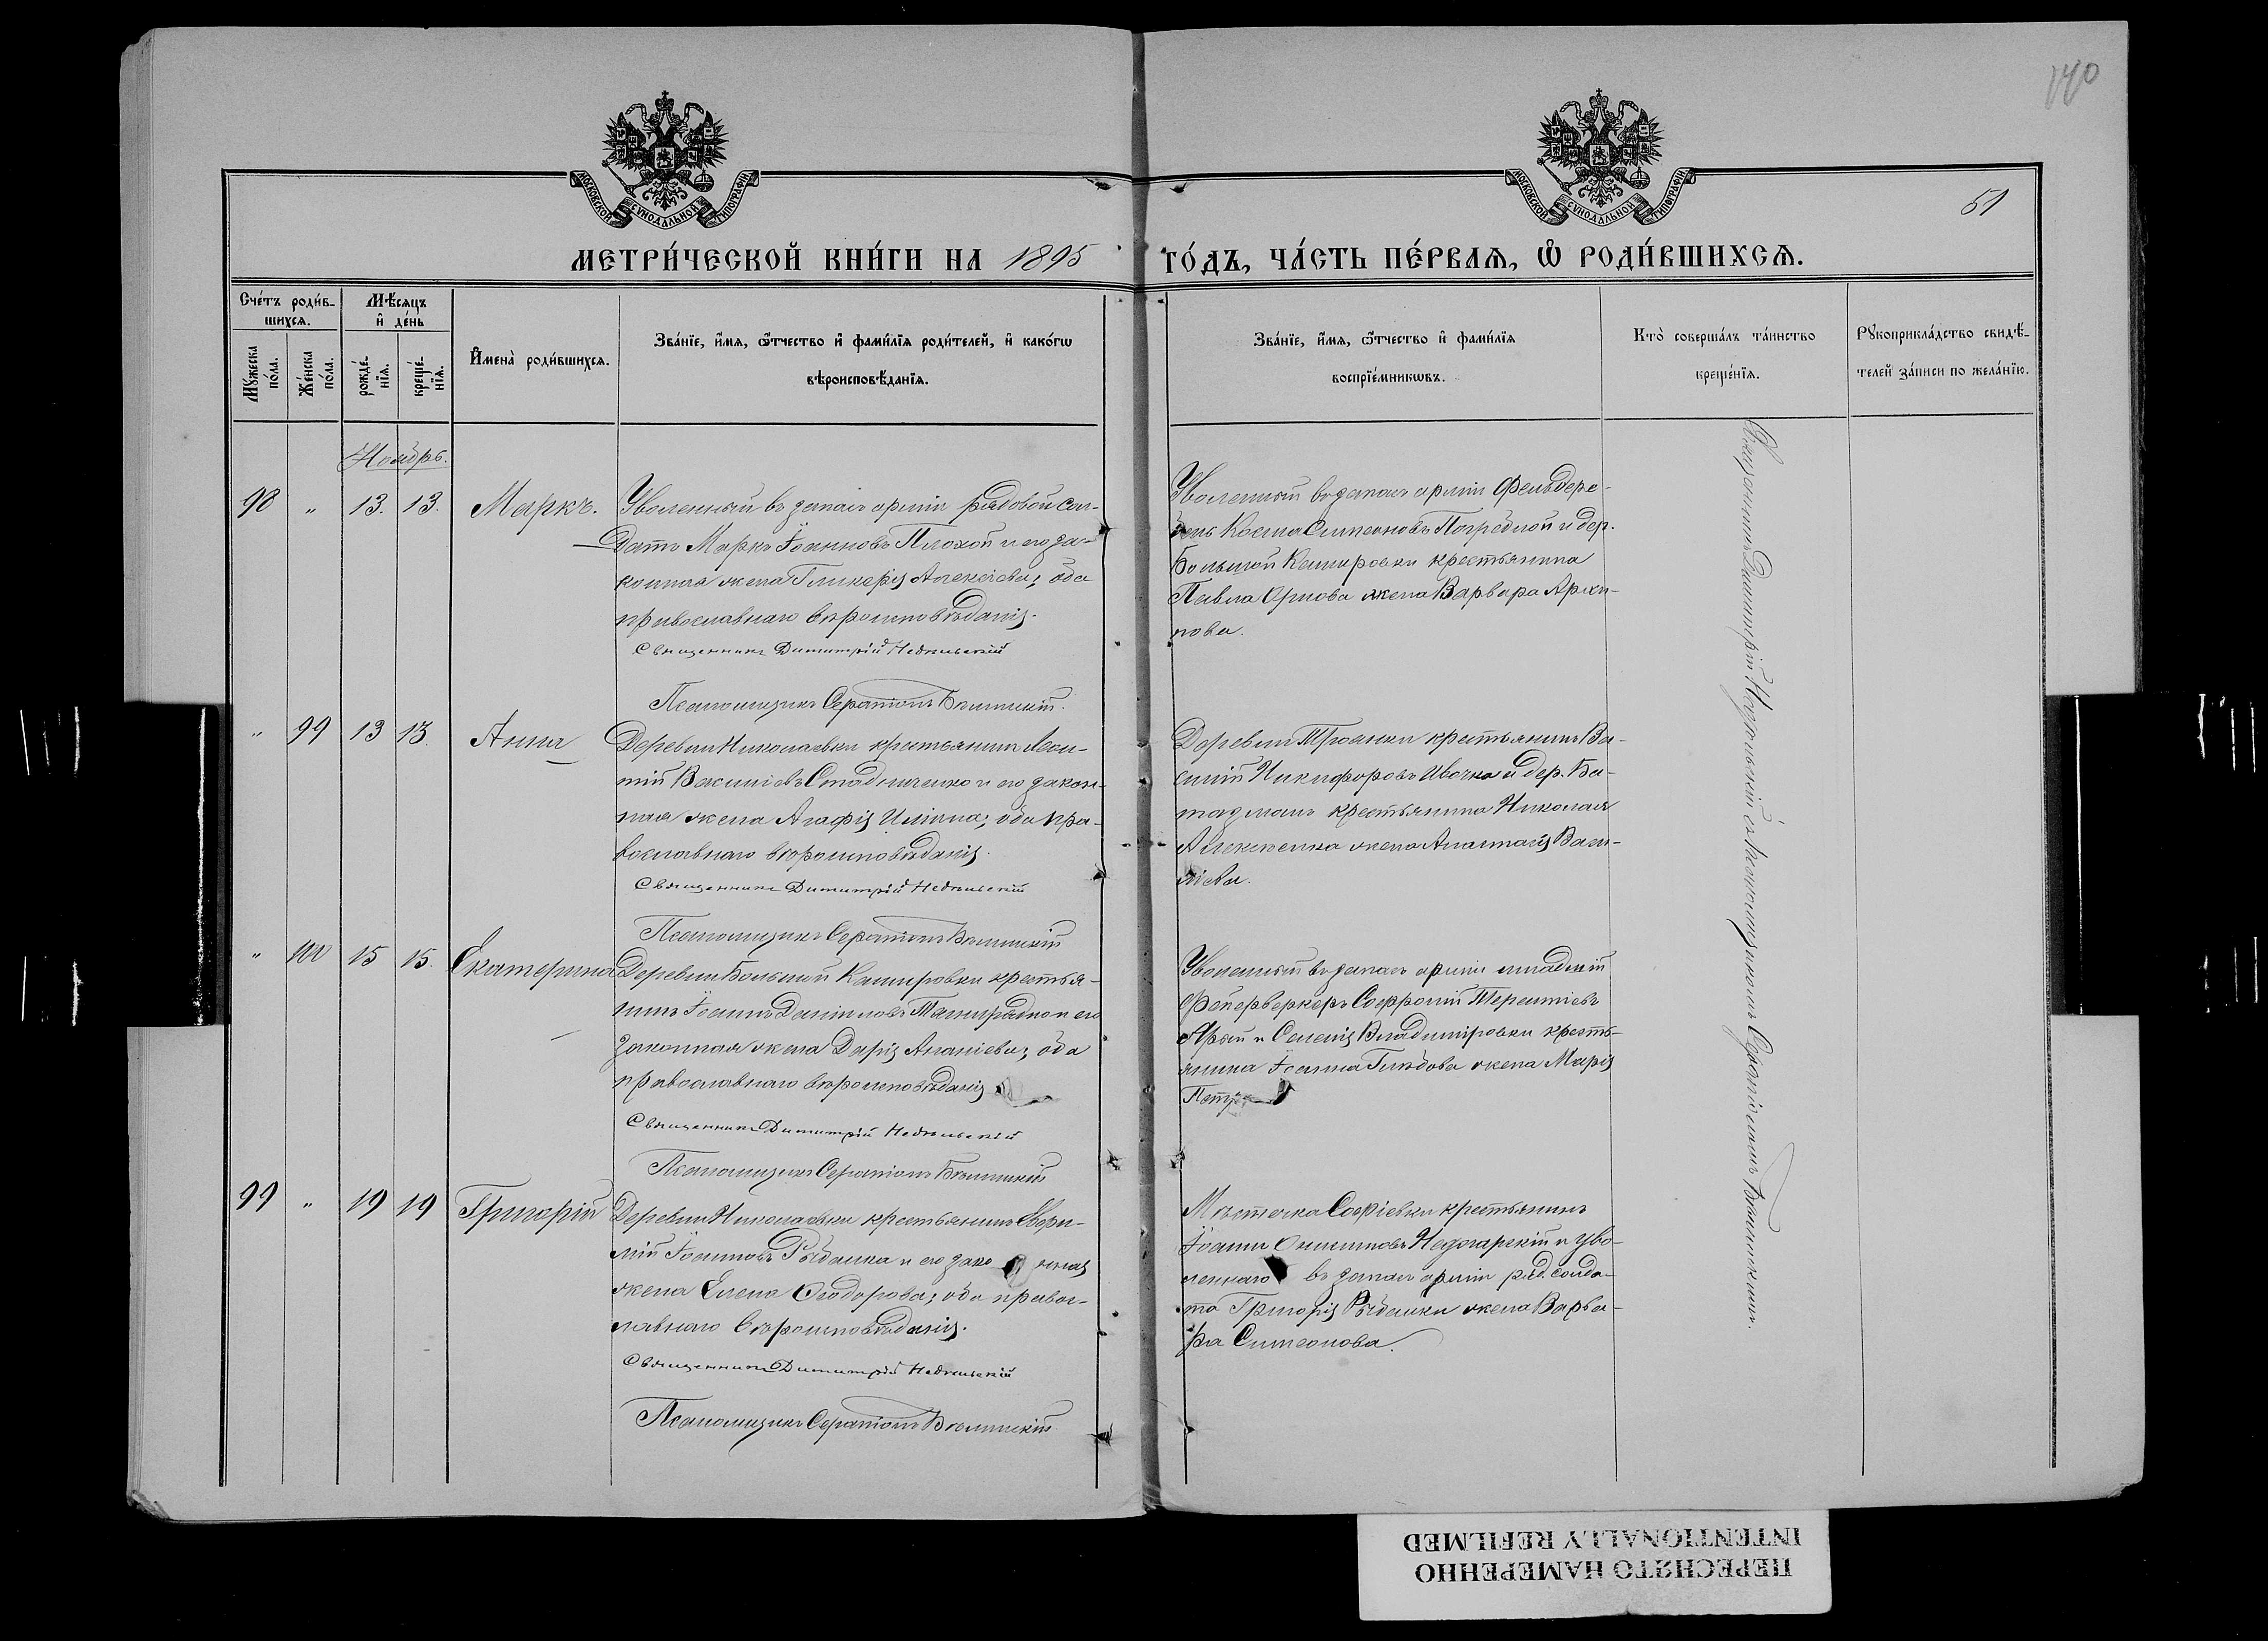 140
51
МОСКОВСКОЙ СѴНОДАЛЬНОЙ ТИПОГРАФІИ
МОСКОВСКОЙ СѴНОДАЛЬНОЙ ТИПОГРАФІИ
МЕТРИ́ЧЕСКОЙ КНИ́ГИ НА 1895 ГО́ДЪ, ЧА́СТЬ ПЕ́РВАѦ, Ѽ РОДИ́ВШИХСѦ.
Сче́тъ роди́в-
шихсѧ.
Мѣ́сѧцъ
и҆ де́нь
Мꙋ́жеска по́ла.
Же́нска по́ла.
рожде́-
нїѧ.
креще́-
нїѧ.
И҆мена̀ роди́вшихсѧ.
Зва́нїе, и҆́мѧ, ѻ҆́тчество и҆ фами́лїѧ роди́телей, и҆ како́гѡ
вѣроисповѣ́данїѧ.
Зва́нїе, и҆́мѧ, ѻ҆́тчество и҆ фами́лїѧ
воспрїе́мникѡвъ.
Кто̀ соверша́лъ та́инство
креще́нїѧ.
Рꙋкоприкла́дство свидѣ́-
телей за́писи по жела́нїю.
Ноябрь.
98 " 13. 13. Маркъ.
Уволенный въ запасъ арміи рядовой сол-
датъ Маркъ Іоанновъ Плохой и его за-
конная жена Гликерія Алексіева; оба
православнаго вѣроисповѣданія.
Священникъ Димитрій Недѣльскій
Псаломщикъ Серапіонъ Бѣлинскій.
Уволенный въ запасъ арміи
Косма Симеоновъ Погребной и дер.
Большой Кашировки крестьянина
Павла Орлова жена Варвара Архи-
пова.
" 99 13 13. Анна
Деревни Николаевки крестьянинъ Леон-
тій Василіевъ Стадниченко и его закон-
ная жена Агафія Иліина; оба пра-
вославнаго вѣроисповѣданія.
Священникъ Димитрій Недѣльскій
Псаломщикъ Серапіонъ Бѣлинскій
Деревни Троянки крестьянинъ Ва-
силій Никифоровъ Ивочка и дер.
крестьянина Николая
Алексеенка жена Анастасія Васи-
ліева.
" 100 15 15. Екатерина
Деревни Большой Кашировки крестья-
нинъ Іоаннъ Даніиловъ и его
законная жена Дарія Ананіева; оба
православнаго вѣроисповѣданія
Священникъ Димитрій Недѣльскій
Псаломщикъ Серапіонъ Бѣлинскій
Уволенный въ запасъ арміи младшій
фейерверкеръ Софроній Терентіевъ
Ярый и Селенія Владимировки кресть-
янина Іоанна жена Марія
99 " 19 19 Григорій
Деревни Николаевки крестьянинъ Евфи-
мій Іоанновъ Рябашка и его законная
жена Елена Ѳеодорова; оба правос-
лавнаго вѣроисповѣданія.
Священникъ Димитрій Недѣльскій
Псаломщикъ Серапіонъ Бѣлинскій
Мѣстечка Софіевки крестьянинъ
Іоаннъ Онисимовъ и уво-
леннаго въ запасъ арміи ряд. солда-
та Григорія Рябашки жена Варва-
ра Симеонова.
Священникъ Димитрій Недѣльскій съ псаломщикомъ Серапіономъ Бѣлинскимъ.
ПЕРЕСНЯТО НАМЕРЕННО
INTENTIONALLY REFILMED